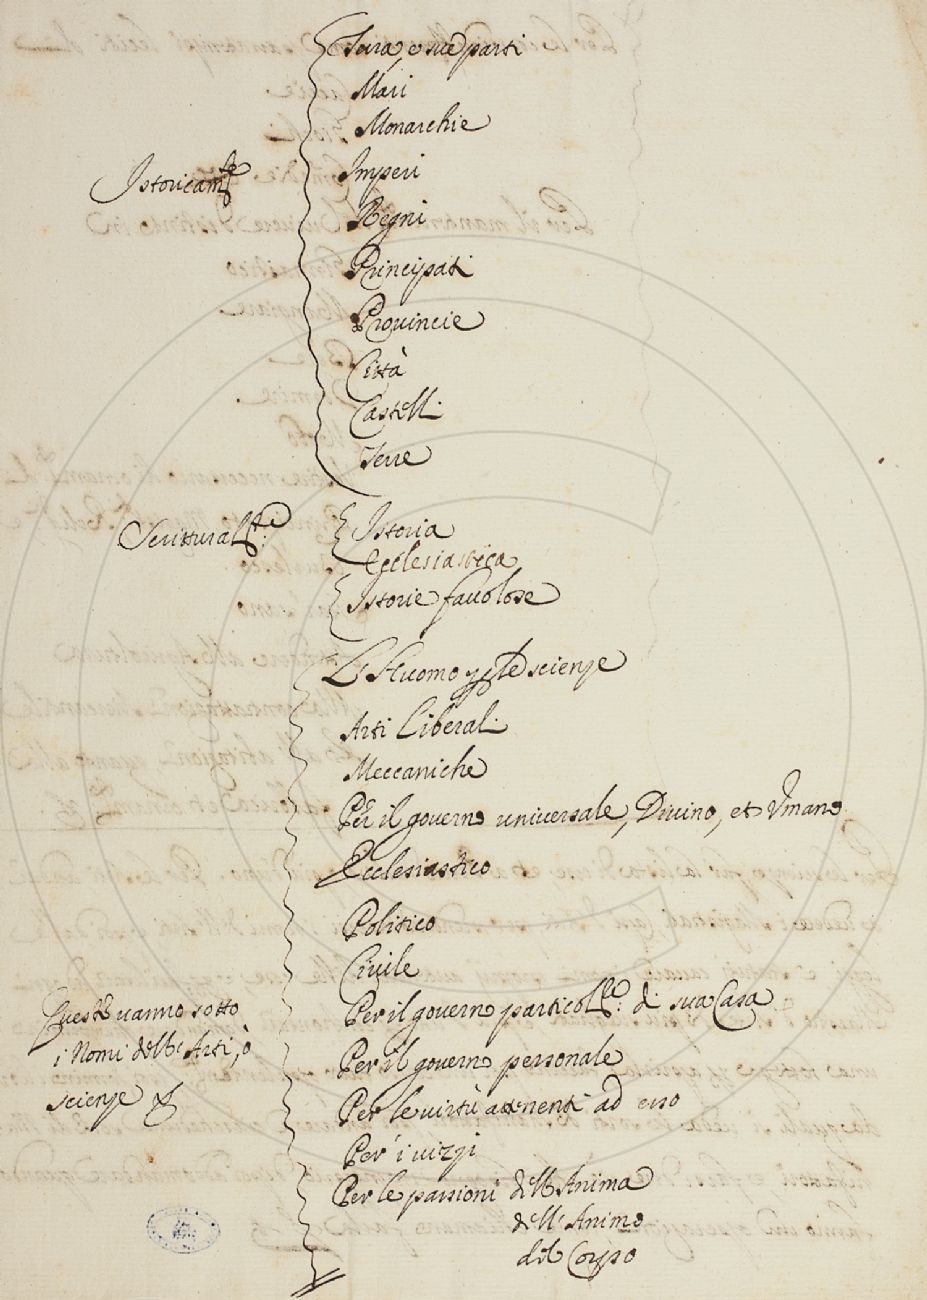 Terra, e sue parti
Mari
Monarchie
Istoricam.te
Imperi
Regni
Principati
Provincie
Città
Castelli
Terre
Scrittural.te:
Istoria
Ecclesiastica
Istorie favolose
L'Huomo p le scienze
Arti Liberali
Meccaniche
Per il governo universale, Divino, et Vmano
Ecclesiastico
Politico
Civile
Queste vanno sotto
i Nomi delle Arti, ò
scienze &
Per il governo particol.re: di sua Casa
Per il governo personale
Per le virtù attinenti ad esso
Per i vizzi
Per le passioni dell'Anima
dell'Animo
del Corpo